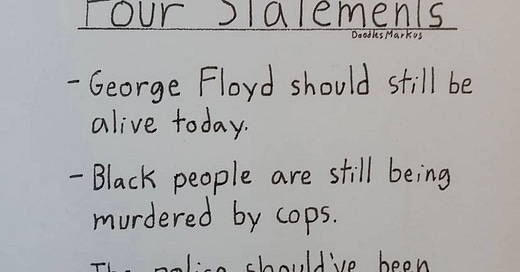 Four Statements
DoodlesMarkus
- George Floyd should still be
alive today.
- Black people are still being
murdered by cops.
The police should've been